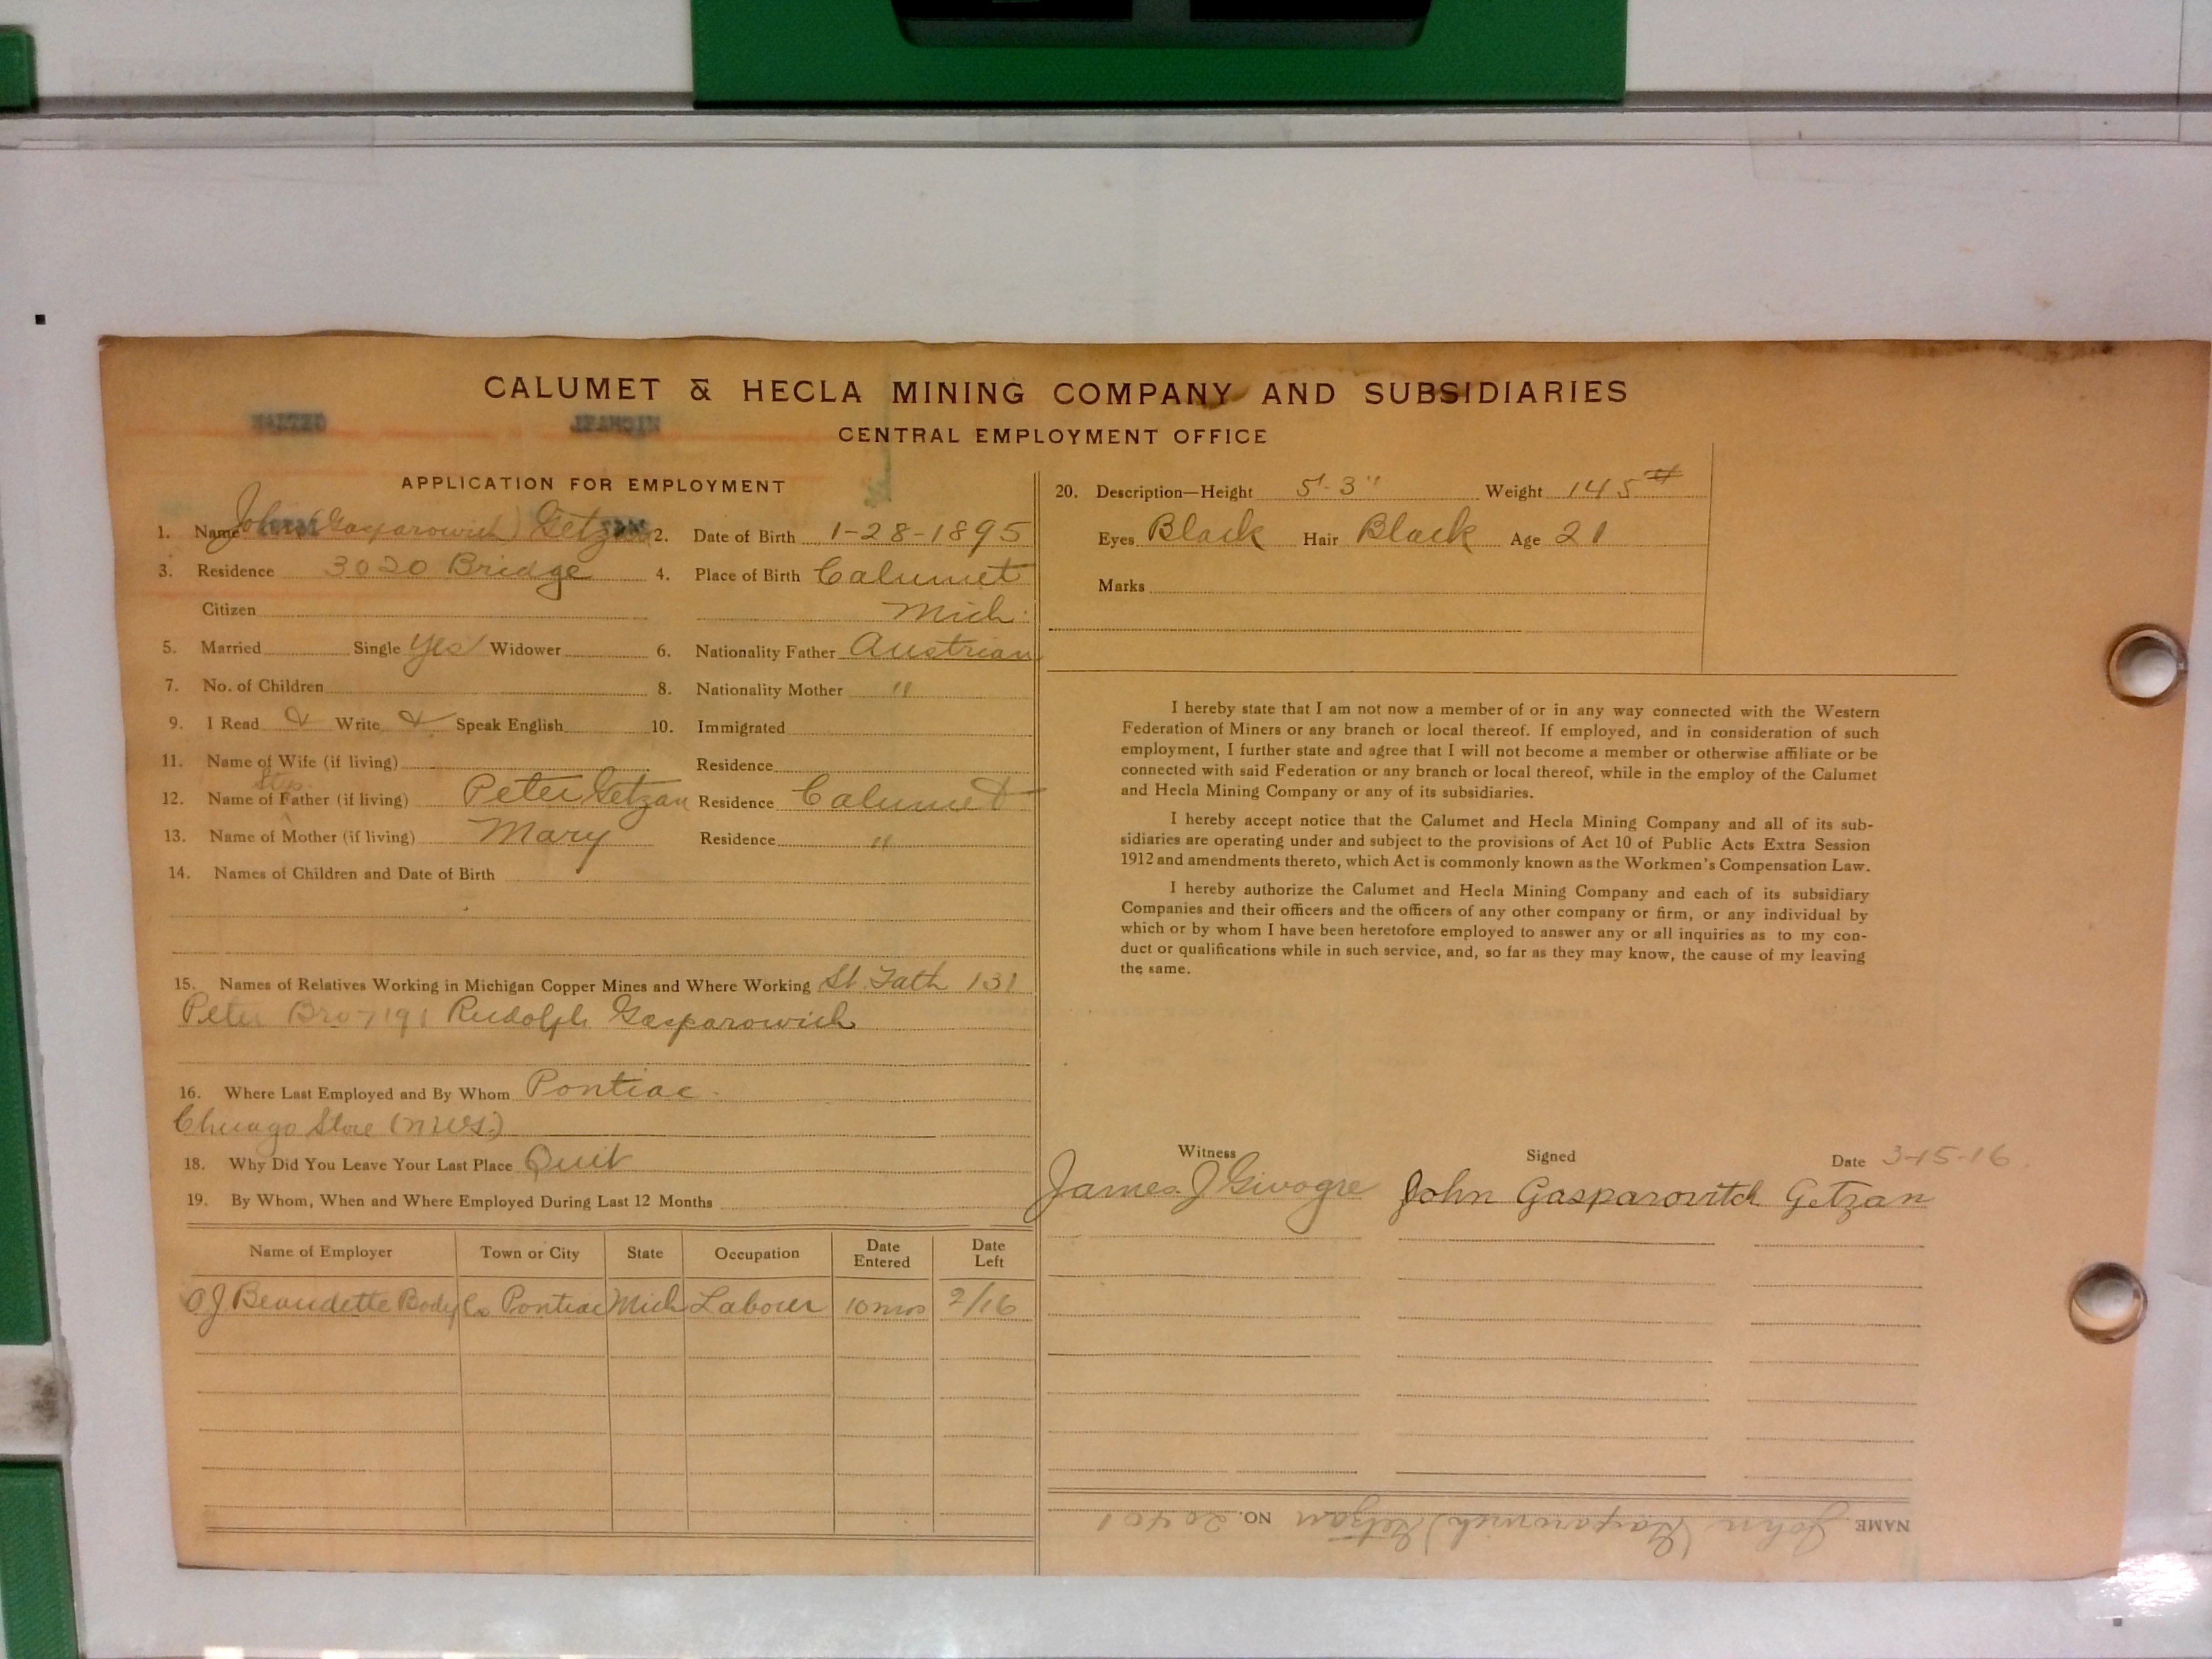 CALUMET & HECLA MINING COMPANY AND SUBSIDIARIES
CENTRAL EMPLOYMENT OFFICE
APPLICATION FOR EMPLOYMENT
1. Name John (Gasparowich) Getzan 2. Date of Birth 1-28-1895
3. Residence 3020 Bridge 4. Place of Birth Calumet
Citizen Mich.
5. Married Single Yes Widower 6. Nationality Father Austrian
7. No. of Children 8. Nationality Mother "
9. I Read & Write & Speak English 10. Immigrated
11. Name of Wife (if living) Residence
Step
12. Name of Father (if living) Peter Getzan Residence Calumet
13. Name of Mother (if living) Mary Residence "
14. Names of Children and Date of Birth
15. Names of Relatives Working in Michigan Copper Mines and Where Working St. Fath 131
Peter Bro 7191 Rudolph Gasparowich
16. Where Last Employed and By Whom Pontiac.
Chicago Store
18. Why Did You Leave Your Last Place Quit
19. By Whom, When and Where Employed During Last 12 Months
Name of Employer Town or City State Occupation Date Entered Date Left
O.J. Beaudette Body Co Pontiac Mich Laborer 10 mos 2/16
20. Description—Height 5'-3" Weight 145#
Eyes Black Hair Black Age 21
Marks
I hereby state that I am not now a member of or in any way connected with the Western
Federation of Miners or any branch or local thereof. If employed, and in consideration of such
employment, I further state and agree that I will not become a member or otherwise affiliate or be
connected with said Federation or any branch or local thereof, while in the employ of the Calumet
and Hecla Mining Company or any of its subsidiaries.
I hereby accept notice that the Calumet and Hecla Mining Company and all of its sub-
sidiaries are operating under and subject to the provisions of Act 10 of Public Acts Extra Session
1912 and amendments thereto, which Act is commonly known as the Workmen's Compensation Law.
I hereby authorize the Calumet and Hecla Mining Company and each of its subsidiary
Companies and their officers and the officers of any other company or firm, or any individual by
which or by whom I have been heretofore employed to answer any or all inquiries as to my con-
duct or qualifications while in such service, and, so far as they may know, the cause of my leaving
the same.
Witness Signed Date 3-15-16.
James J Givogre John Gasparovitch Getzan
NAME John (Gasparowich) Getzan NO. 20401